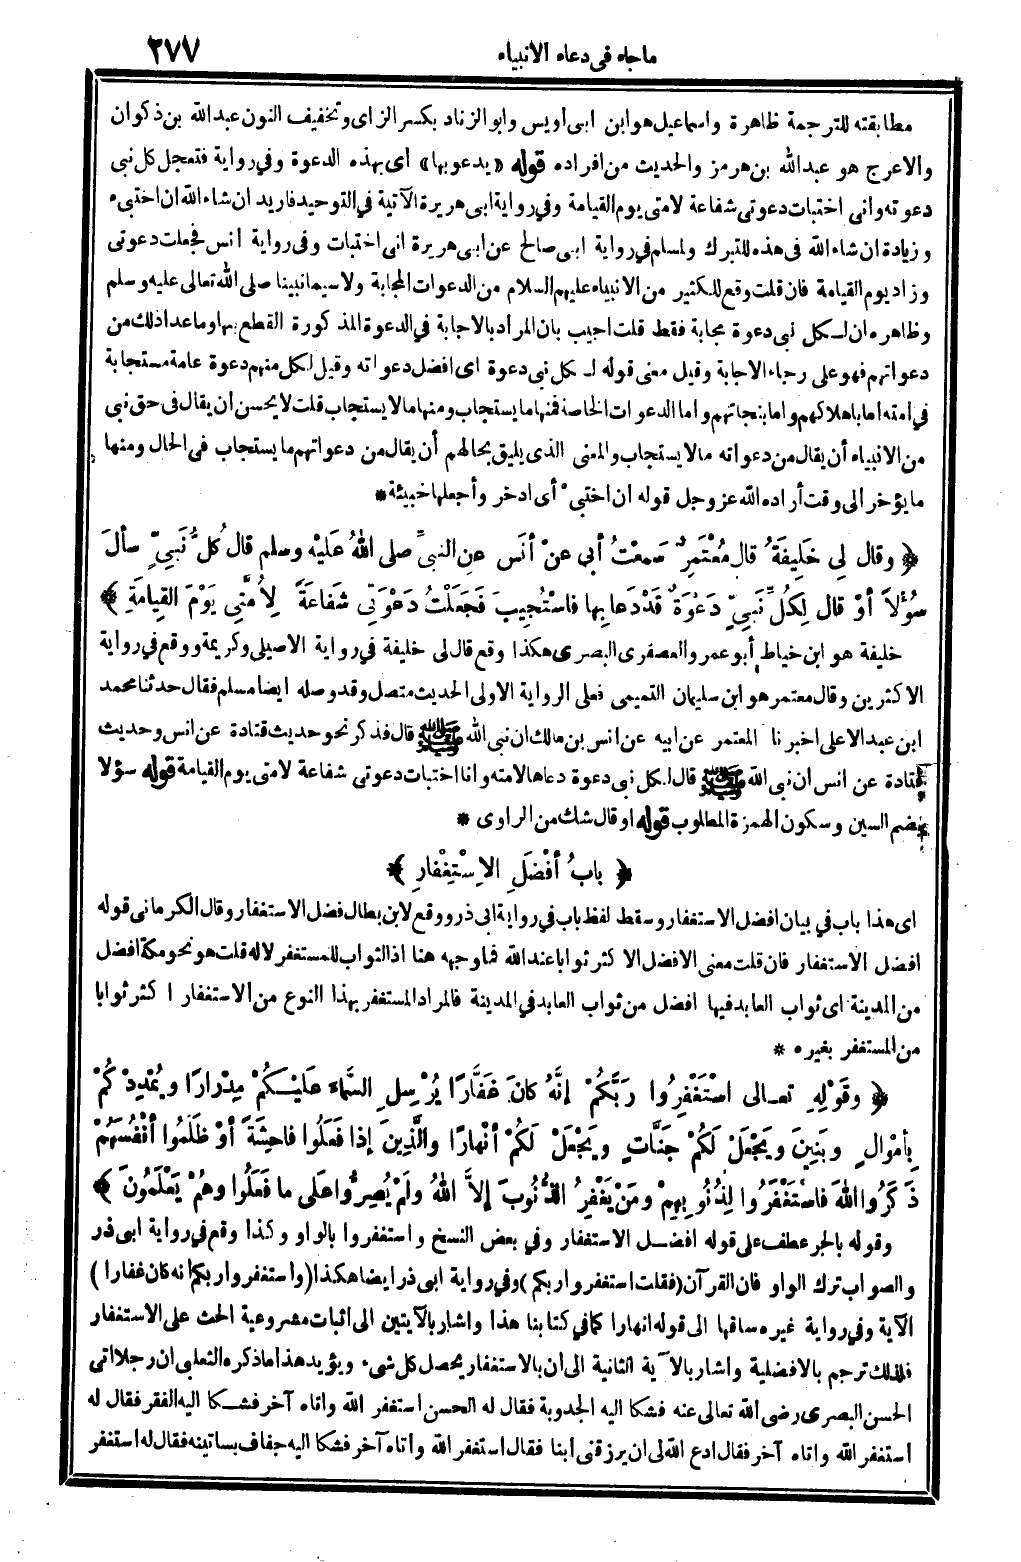 ماجاء فى دعاء الانبياء ٢٧٧
مطابقته للترجمة ظاهرة واسماعيل هو ابن ابى أويس وابو الزناد بكسر الزاى وتخفيف النون عبدالله بن ذكوان
والاعرج هو عبدالله بن هرمز والحديث من افراده قوله «يدعوبها» أى بهذه الدعوة وفي رواية فتعجل كل نبى
دعوته وانى اختبات دعوتى شفاعة لامتى يوم القيامة وفي رواية ابى هريرة الآتية في التوحيد فاريد ان شاء الله ان اختبىء
وزيادة ان شاء الله فى هذه للتبرك ولمسلم في رواية ابى صالح عن ابى هريرة انى اختبات وفى رواية انس فجعلت دعوتى
وزاد يوم القيامة فان قلت وقع للكثير من الانبياء عليهم السلام من الدعوات المجابة ولا سيما نبينا صلى الله تعالى عليه وسلم
وظاهره ان لكل نبى دعوة مجابة فقط قلت اجيب بان المراد بالاجابة في الدعوة المذكورة القطع بها وماعدا ذلك من
دعواتهم فهو على رجاء الاجابة وقيل معنى قوله لكل نبى دعوة اى افضل دعواته وقيل لكل منهم دعوة عامة مستجابة
في امته اما باهلاكهم واما بنجاتهم واما الدعوات الخاصة فمنها ما يستجاب ومنها مالا يستجاب قلت لا يحسن أن يقال فى حق نبى
من الانبياء أن يقال من دعواته مالا يستجاب والمعنى الذى يليق بحالهم أن يقال من دعواتهم ما يستجاب فى الحال ومنها
ما يؤخر الى وقت أراده الله عز وجل قوله ان اختبىء أى ادخر وأجعلها خبيئة *
﴿ وقال لِى خَلِيفَةُ قال مُعْتَمِرٌ سَمِعْتُ أبى عنْ أنَسٍ عنِ النبىِّ صلى اللهُ عَلَيْهِ وسلم قال كُلُّ نَبِىٍّ سألَ
سُؤْلاً أوْ قال لِكُلِّ نَبِىٍّ دَعْوَةٌ قَدْ دَعا بِها فاسْتُجِيبَ فَجَعَلْتُ دَعْوَتِى شَفاعَةً لِأُمَّتِى يَوْمَ القِيامَةِ ﴾
خليفة هو ابن خياط أبو عمرو العصفرى البصرى هكذا وقع قال لى خليفة في رواية الاصيلى وكريمة ووقع في رواية
الاكثرين وقال معتمر هو ابن سليمان التميمى فعلى الرواية الاولى الحديث متصل وقد وصله ايضا مسلم فقال حدثنا محمد
ابن عبد الاعلى اخبرنا المعتمر عن ابيه عن انس بن مالك ان نبى الله ﷺ قال فذكر نحو حديث قتادة عن انس وحديث
قتادة عن انس ان نبى الله ﷺ قال لكل نبى دعوة دعاها لامته وانا اختبات دعوتى شفاعة لامتى يوم القيامة قوله سؤلا
بضم السين وسكون الهمزة المطلوب قوله اوقال شك من الراوى *
﴿ بابُ أفْضَلِ الاِسْتِغْفارِ ﴾
اى هذا باب في بيان افضل الاستغفار وسقط لفظ باب في رواية ابى ذر ووقع لابن بطال فضل الاستغفار وقال الكرمانى قوله
افضل الاستغفار فان قلت معنى الافضل الاكثر ثوابا عند الله فما وجهه هنا اذ الثواب للمستغفر لاله قلت هو نحو مكة افضل
من المدينة اى ثواب العابد فيها افضل من ثواب العابد في المدينة فالمراد المستغفر بهذا النوع من الاستغفار اكثر ثوابا
من المستغفر بغيره *
﴿ وقَوْلِهِ تعالى اسْتَغْفِرُوا رَبَّكُمْ إنَّهُ كانَ غَفَّارًا يُرْسِلِ السَّماءَ عَلَيْكُمْ مِدْرارًا ويُمْدِدْكُمْ
بِأمْوالٍ وبَنِينَ ويَجْعَلْ لَكُمْ جَنَّاتٍ ويَجْعَلْ لَكُمْ أنْهارًا والَّذِينَ إذا فَعَلُوا فاحِشَةً أوْ ظَلَمُوا أنْفُسَهُمْ
ذَكَرُوا اللهَ فاسْتَغْفَرُوا لِذُنُوبِهِمْ ومَنْ يَغْفِرُ الذُّنُوبَ إلاَّ اللهُ ولَمْ يُصِرُّوا عَلَى ما فَعَلُوا وهُمْ يَعْلَمُونَ ﴾
وقوله بالجر عطف على قوله افضل الاستغفار وفي بعض النسخ واستغفروا بالواو وكذا وقع في رواية ابى ذر
والصواب ترك الواو فان القرآن (فقلت استغفروا ربكم) وفي رواية ابى ذر ايضا هكذا (واستغفروا ربكم انه كان غفارا)
الآية وفي رواية غيره ساقها الى قوله انهارا كما في كتابنا هذا واشار بالآيتين الى اثبات مشروعية الحث على الاستغفار
فلذلك ترجم بالافضلية واشار بالآية الثانية الى ان بالاستغفار يحصل كل شىء ويؤيد هذا ما ذكره الثعلبى ان رجلا اتى
الحسن البصرى رضى الله تعالى عنه فشكا اليه الجدوبة فقال له الحسن استغفر الله واتاه آخر فشكا اليه الفقر فقال له
استغفر الله واتاه آخر فقال ادع الله لى ان يرزقنى ابنا فقال استغفر الله وأتاه آخر فشكا اليه جفاف بساتينه فقال له استغفر